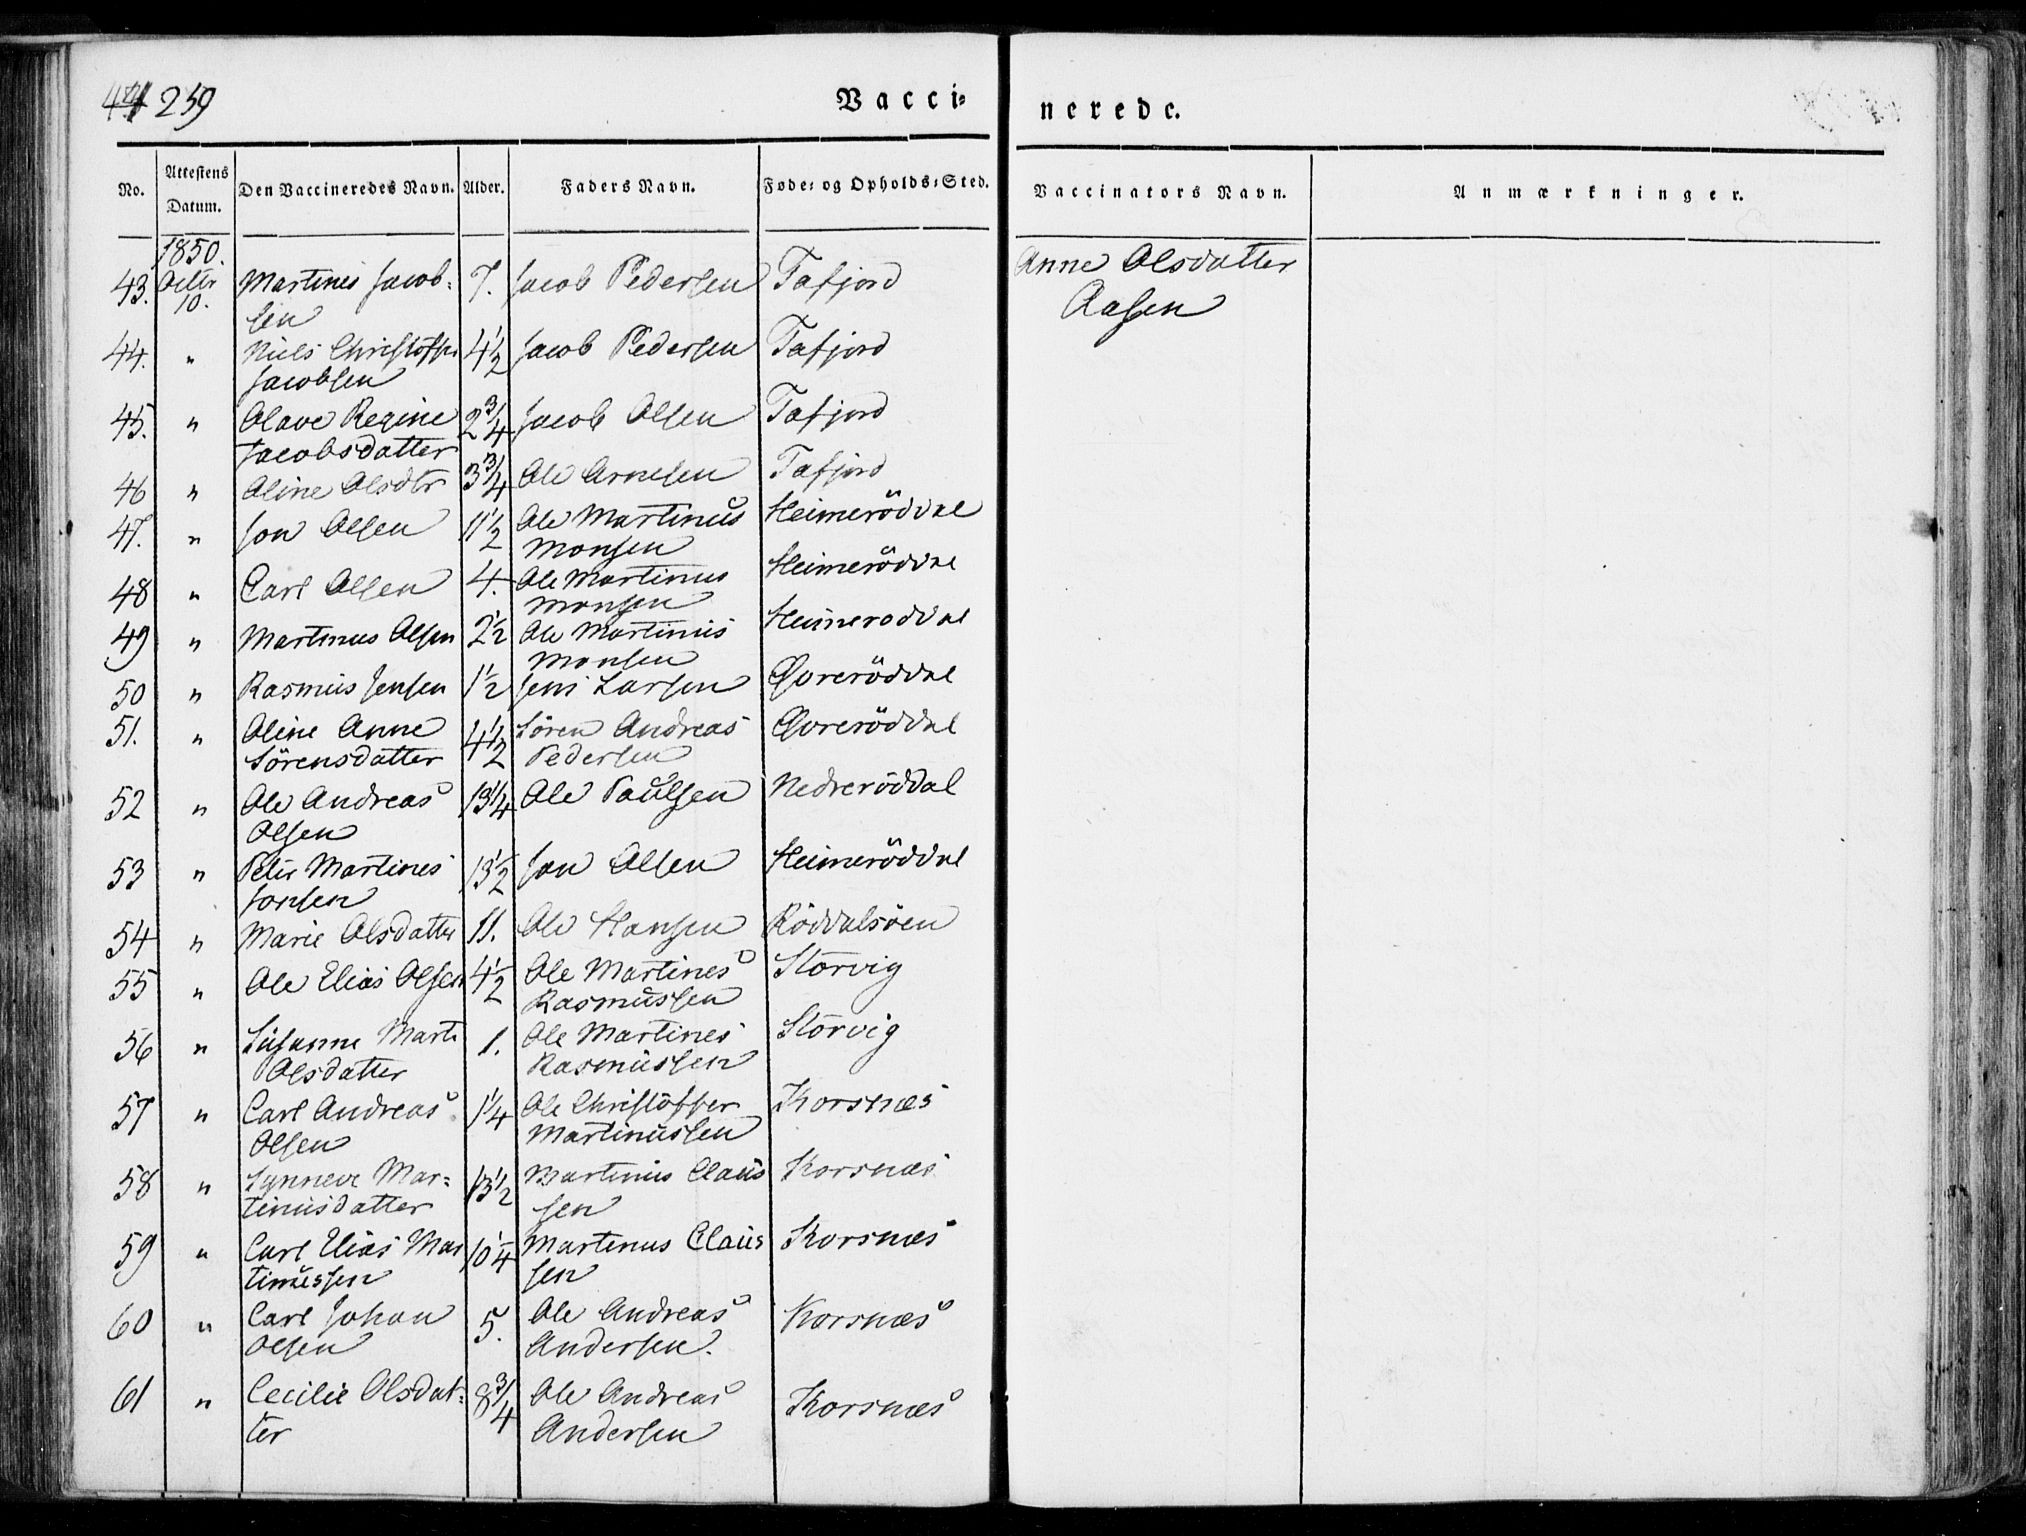 441 259
Vacci-
nerede.
No. Attestens Datum. Den Vaccineredes Navn. Alder. Faders Navn. Føde- og Opholds-Sted. Vaccinators Navn. Anmærkninger.
1850.
43. Octbr 10. Martines Jacob- 7. Jacob Pedersen Tafjord Anne Olsdatter
sen Aasen
44. " Niels Christoffer 4 1/2 Jacob Pedersen Tafjord
Jacobsen
45. " Olave Regine 2 3/4 Jacob Olsen Tafjord
Jacobsdatter
46 " Oline Olsdtr 3 3/4 Ole Arnesen Tafjord
47. " Jon Olsen 11 1/2 Ole Martinus Heimeröddal
Monsen
48 " Carl Olsen 4. Ole Martinus Heimeröddal
Monsen
49 " Martinus Olsen 2 1/2 Ole Martinus Heimeroddal
Monsen
50 " Rasmus Jensen 1 1/2 Jens Larsen Øvreröddal
51. " Oline Anne 4 1/2 Sören Andreas Øvreröddal
Sörensdatter Pedersen
52 " Ole Andreas 13 1/4 Ole Paulsen Nedreröddal
Olsen
53 " Peter Martines 13 1/2 Jon Olsen Heimeröddal
Jonsen
54 " Marie Olsdatter 11. Ole Hansen Röddalsöen
55 " Ole Elias Olsen 4 1/2 Ole Martines Storvig
Rasmussen
56 " Susanne Marti 1. Ole Martines Storvig
Olsdatter Rasmussen
57 " Carl Andreas 1 1/4 Ole Christoffer Korsnæs
Olsen Martinussen
58 " Synneve Mar- 13 1/2 Martinus Claus Korsnæs
tinusdatter sen
59 " Carl Elias Mar 10 1/4 Martinus Claus Korsnæs
tinussen sen
60 " Carl Johan 5. Ole Andreas Korsnæs
Olsen Andersen.
61 " Cecilie Olsdat- 8 3/4 Ole Andreas Korsnæs
ter Andersen